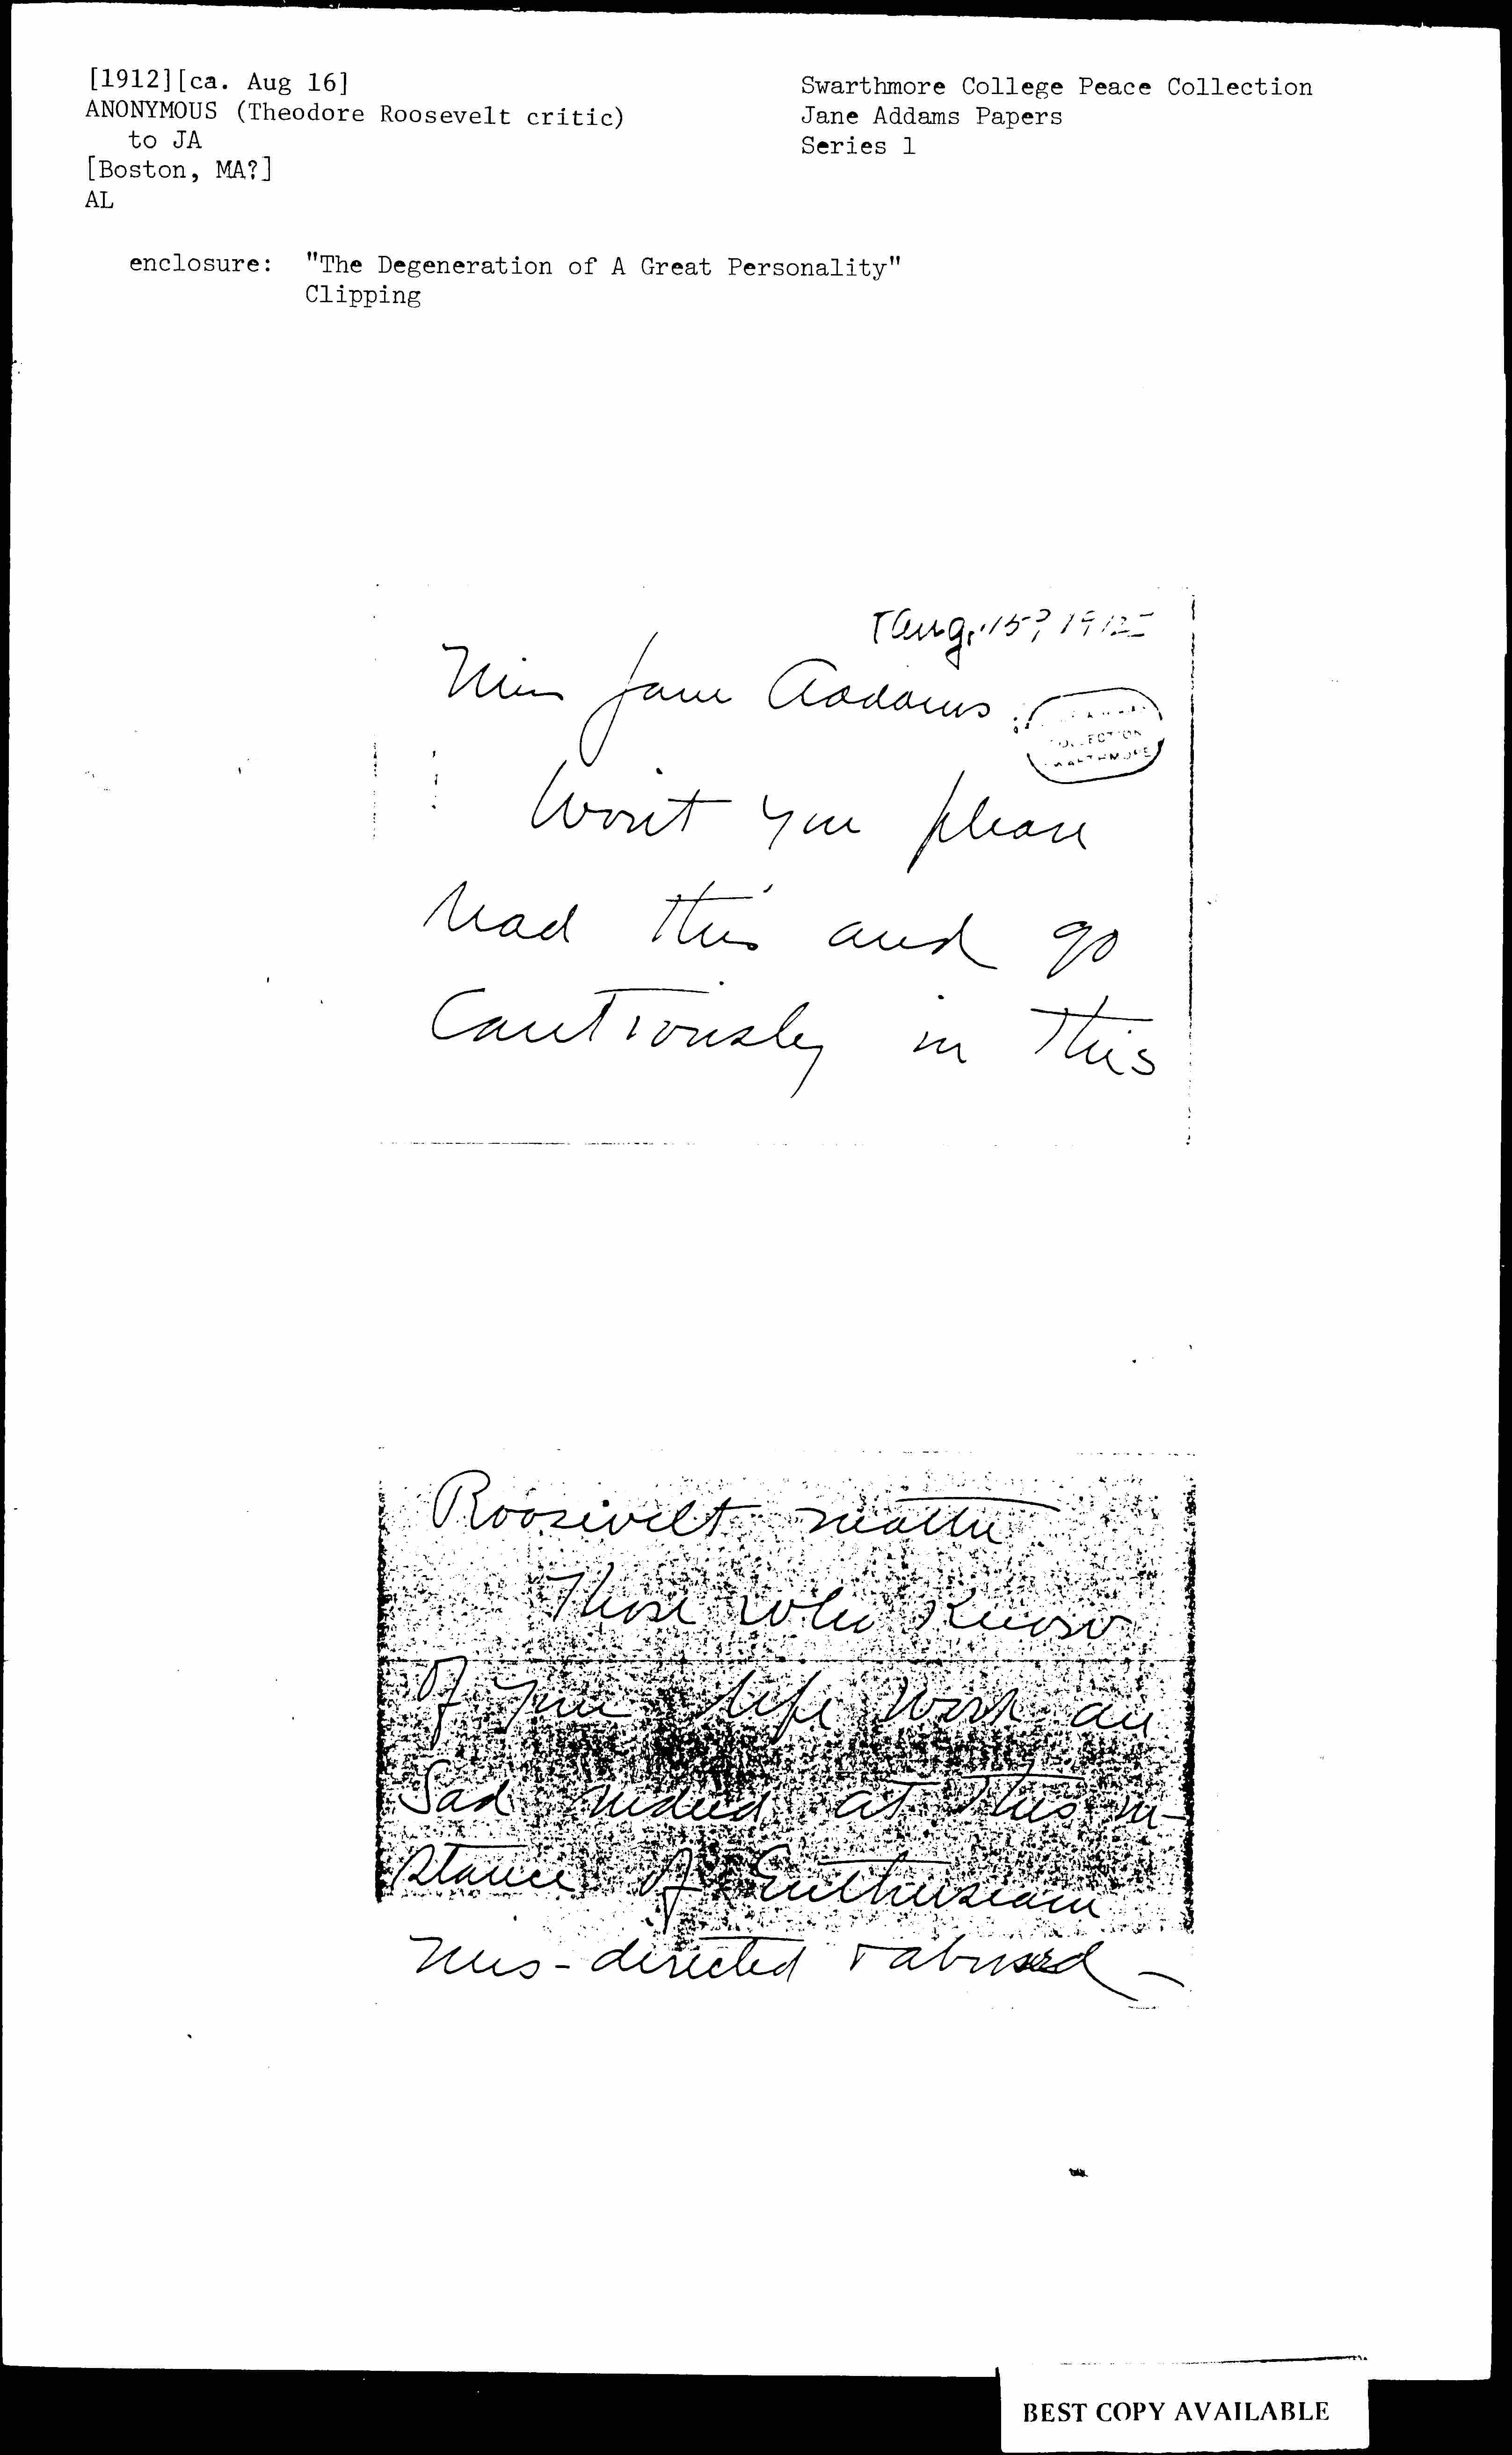 [1912][ca. Aug 16]
ANONYMOUS (Theodore Roosevelt critic)
to JA
[Boston, MA?]
AL
Swarthmore College Peace Collection
Jane Addams Papers
Series 1
enclosure: "The Degeneration of A Great Personality"
Clipping
[Aug. 15? 1912
Miss Jane Addams:
COLLECTION
SWARTHMORE
Won't you please
read this and go
Cautiously in this
Roosevelt matter
Those who know
of your life work are
Sad indeed at this in-
stance of Enthusiasm
mis-directed & abused -
BEST COPY AVAILABLE